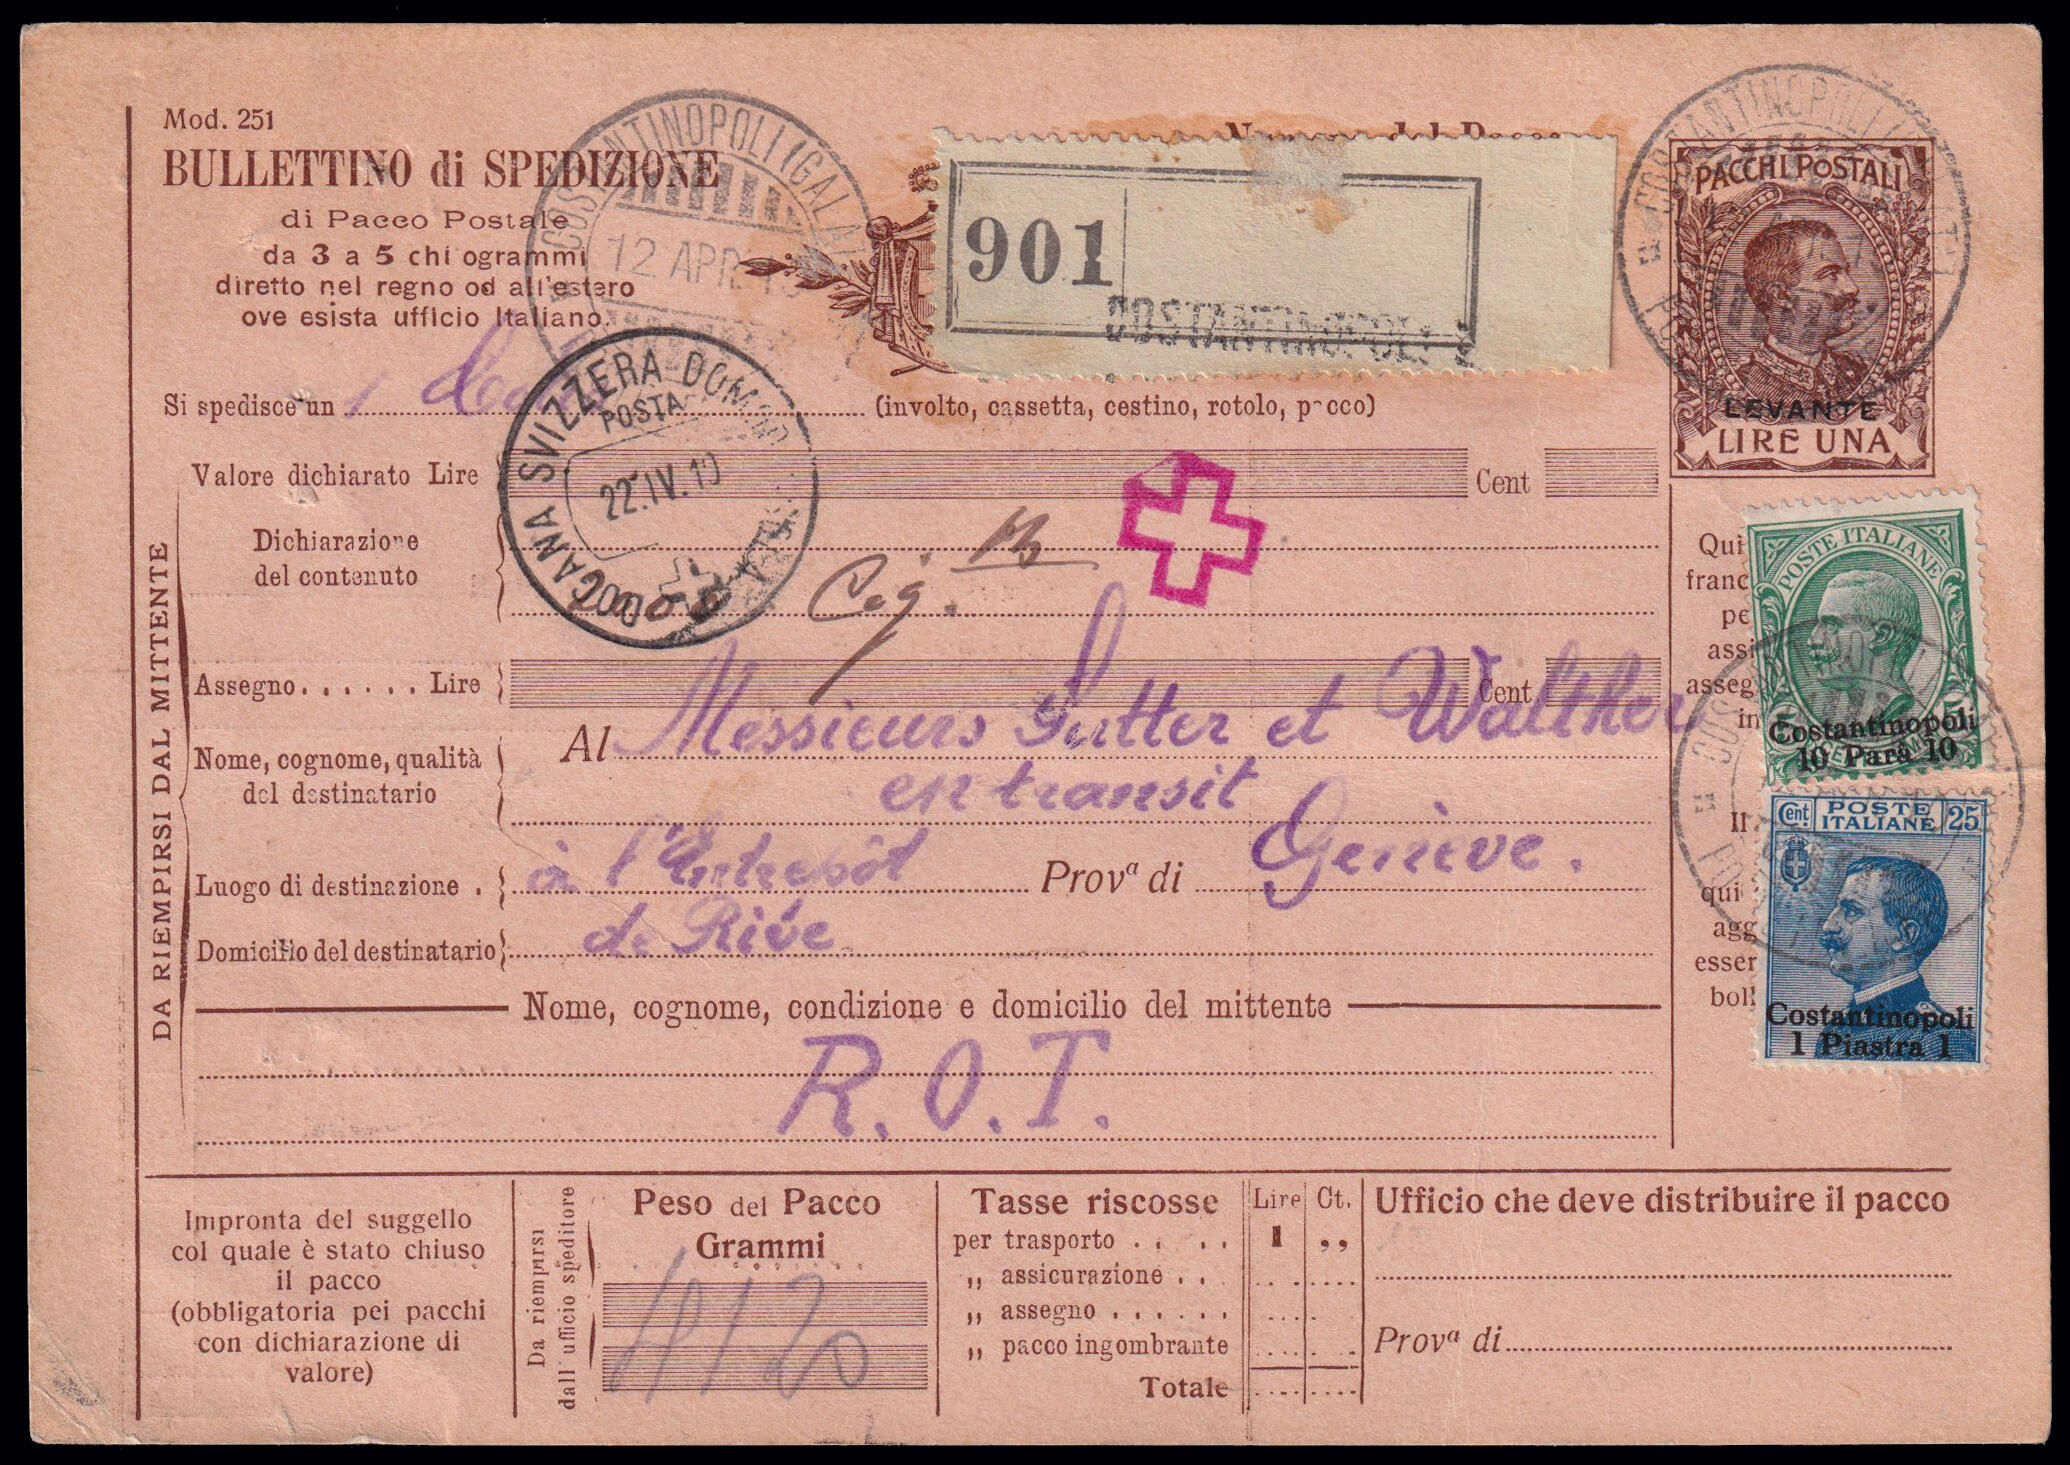 Mod. 251
BULLETTINO di SPEDIZIONE
di Pacco Postale
da 3 a 5 chilogrammi
diretto nel regno od all'estero
ove esista ufficio Italiano.
COSTANTINOPOLI (GALATA)
12 APR
901
COSTANTINOPOLI
COSTANTINOPOLI
PACCHI POSTALI
LEVANTE
LIRE UNA
Si spedisce un 1 (involto, cassetta, cestino, rotolo, pacco)
DOGANA SVIZZERA DOMODOSSOLA
POSTA
22.IV.19
DA RIEMPIRSI DAL MITTENTE
Valore dichiarato Lire Cent
Dichiarazione
del contenuto
Assegno...... Lire Cent
Nome, cognome, qualità
del destinatario
Al Messieurs Sutter et Walther
en transit
Luogo di destinazione . à l'Entrepôt Provª di Genève.
Domicilio del destinatario de Rive
Nome, cognome, condizione e domicilio del mittente
R.O.T.
Qui
franc
pe
assi
asseg
in
Il
qui
agg
esser
boll
POSTE ITALIANE
5
Costantinopoli
10 Parà 10
Cent. POSTE ITALIANE 25
Costantinopoli
1 Piastra 1
Impronta del suggello
col quale è stato chiuso
il pacco
(obbligatoria pei pacchi
con dichiarazione di
valore)
Da riempirsi
dall'ufficio speditore
Peso del Pacco
Grammi
4120
Tasse riscosse Lire Ct.
per trasporto . . . . 1 ,,
,, assicurazione . . .
,, assegno . . . . . .
,, pacco ingombrante
Totale
Ufficio che deve distribuire il pacco
Provª di